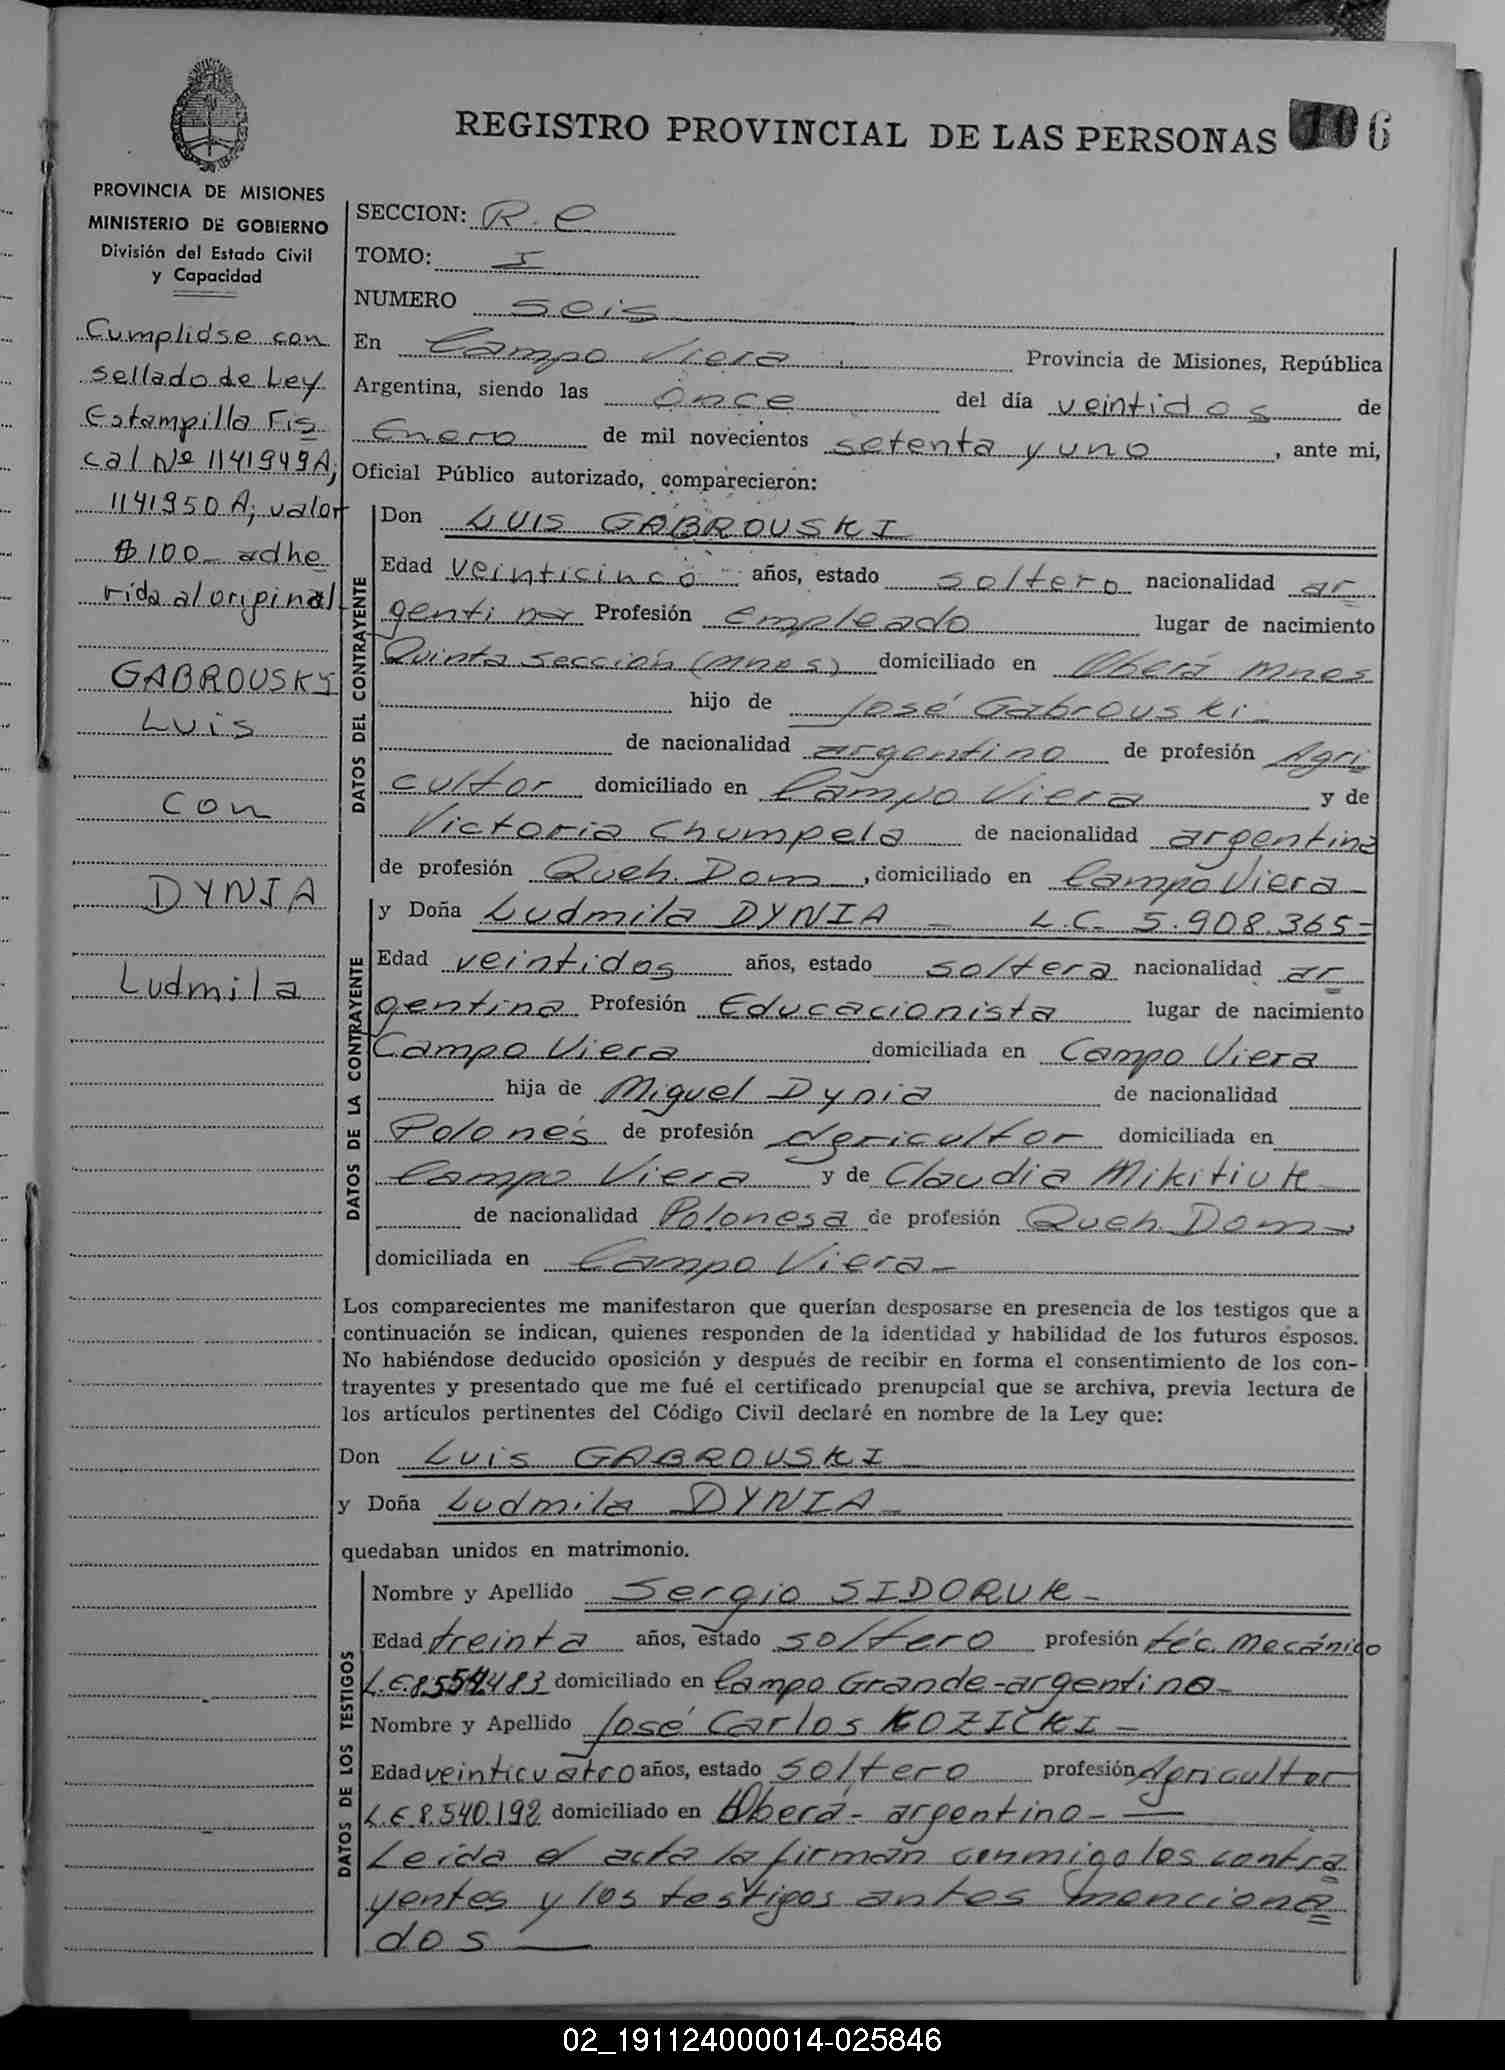 REGISTRO PROVINCIAL DE LAS PERSONAS 106
PROVINCIA DE MISIONES
MINISTERIO DE GOBIERNO
División del Estado Civil
y Capacidad
Cumplidse con
sellado de Ley
Estampilla Fis
cal Nº 1141949A;
1141950A; valor
$100- adhe
rida al original
GABROUSKI
Luis
con
DYNIA
Ludmila
SECCION: R. C
TOMO: I
NUMERO seis
En Campo Viera Provincia de Misiones, República
Argentina, siendo las once del día veintidos de
Enero de mil novecientos setenta y uno, ante mi,
Oficial Público autorizado, comparecieron:
DATOS DEL CONTRAYENTE
Don LUIS GABROUSKI
Edad veinticinco años, estado soltero nacionalidad ar
gentino Profesión Empleado lugar de nacimiento
Quinta sección (Mnes) domiciliado en Oberá Mnes
hijo de José Gabrouski-
de nacionalidad argentino de profesión Agri
cultor domiciliado en Campo Viera y de
Victoria Chumpela de nacionalidad argentina
de profesión Queh. Dom, domiciliado en Campo Viera-
DATOS DE LA CONTRAYENTE
y Doña Ludmila DYNIA - L.C. 5.908.365=
Edad veintidos años, estado soltera nacionalidad ar
gentina Profesión Educacionista lugar de nacimiento
Campo Viera domiciliada en Campo Viera
hija de Miguel Dynia de nacionalidad
Polonés de profesión Agricultor domiciliada en
Campo Viera y de Claudia Mikitiuk
de nacionalidad Polonesa de profesión Queh. Dom-
domiciliada en Campo Viera-
Los comparecientes me manifestaron que querían desposarse en presencia de los testigos que a
continuación se indican, quienes responden de la identidad y habilidad de los futuros esposos.
No habiéndose deducido oposición y después de recibir en forma el consentimiento de los con-
trayentes y presentado que me fué el certificado prenupcial que se archiva, previa lectura de
los artículos pertinentes del Código Civil declaré en nombre de la Ley que:
Don Luis GABROUSKI
y Doña Ludmila DYNIA-
quedaban unidos en matrimonio.
DATOS DE LOS TESTIGOS
Nombre y Apellido Sergio SIDORUK-
Edad treinta años, estado soltero profesión téc. Mecánico
L.E. domiciliado en Campo Grande-argentino-
Nombre y Apellido José Carlos KOZICKI-
Edad veinticuatro años, estado soltero profesión Agricultor
L.E 8.540.192 domiciliado en Oberá- argentino-
Leida el acta la firman conmigo los contra
yentes y los testigos antes menciona
dos
02_191124000014-025846